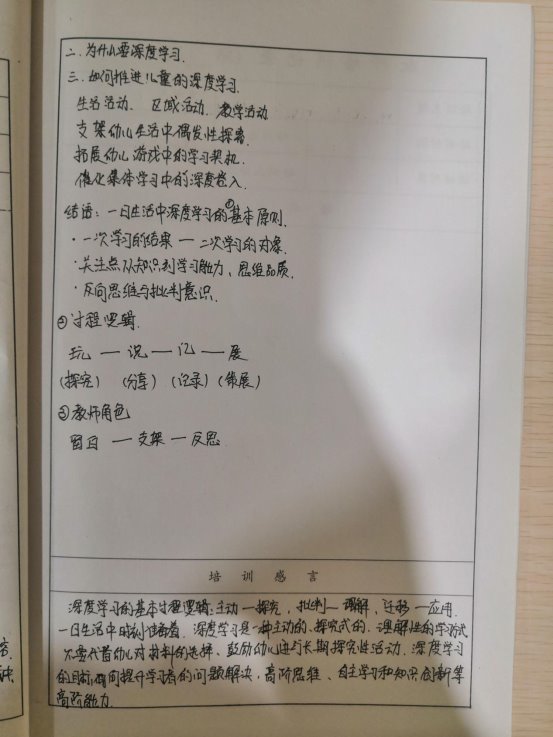 二、为什么要深度学习.
三、如何推进儿童的深度学习.
生活活动、区域活动、教学活动
支架幼儿生活中偶发性探索.
拓展幼儿游戏中的学习契机.
催化集体学习中的深度卷入.
结语:一日生活中深度学习的①基本原则.
·一次学习的结果 — 二次学习的对象.
·关注点从知识到学习能力、思维品质.
·反向思维与批判意识.
②过程逻辑.
玩 — 说 — 记 — 展
(探究) (分享) (记录) (策展)
③教师角色
留白 — 支架 — 反思.
培训感言
深度学习的基本过程逻辑:主动—探究,批判—理解,迁移—应用.
一日生活中时刻准备着,深度学习是一种主动的、探究式的、理解性的学习方式
不要代替幼儿对材料的选择、鼓励幼儿进行长期探究性活动、深度学习
的目的,指向提升学习者的问题解决,高阶思维、自主学习和知识创新等
高阶能力.